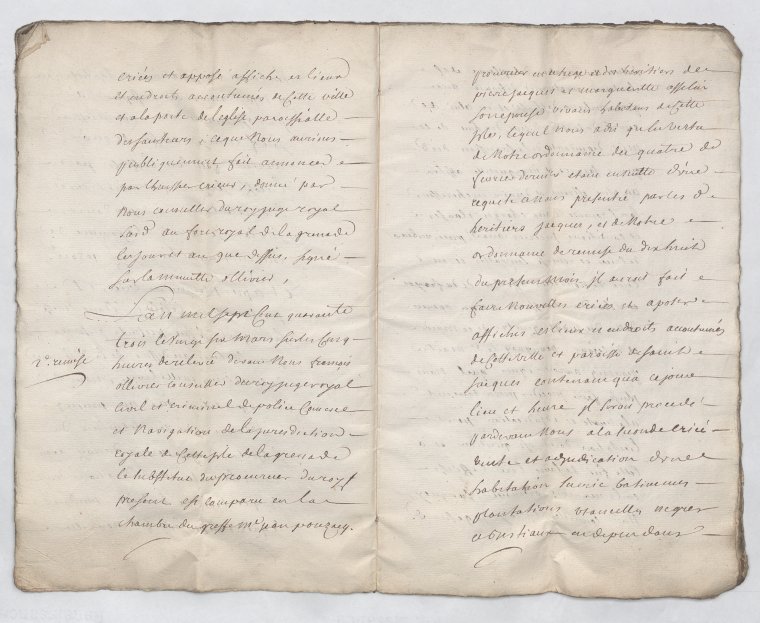 criées et apposé affiche es lieux
et endroits accoutumés de Cette ville
et a la porte de l'eglise paroissialle
des sauteurs, ce que Nous aurions
publiquement fait annoncer
par crieur, donné par
Nous conseiller du roy juge royal
au fort royal de la grenade
les jour et an que dessus, signé
sur la minutte ollivier,
L'an mil sept Cent quarante
trois le vingt six Mars sur les Cinq
heures de relevée devant Nous françois
ollivier conseiller du roy juge royal
Civil et Criminel de police Comerce
et Navigation de la jurisdiction
royale de Cette isle de la grenade
le substitut du procureur du roy
present est comparu en la
chambre du greffe Me jean
2e remise
procureur et des heritiers de
pierre jacques et marguerite
son epouse vivans habitans de Cette
isle, lequel Nous a dit qu'en vertu
de Notre ordonnance du quatre de
fevrier dernier etant en suitte d'une
requete a Nous presentée par les d.
heritiers jacques, et de Notre
ordonnance de remise du dix huit
du present Mois il auroit fait
faire Nouvelles criées et aposer
affiches es lieux et endroits accoutumés
de Cette ville et paroisse de saint
jacques contenant qu'a ce jour
lieu et heure il seroit procedé
pardevant Nous a la seconde criée
vente et adjudication d'une
habitation sucrie batimens
plantations vivres negres
et bestiaux en dependans